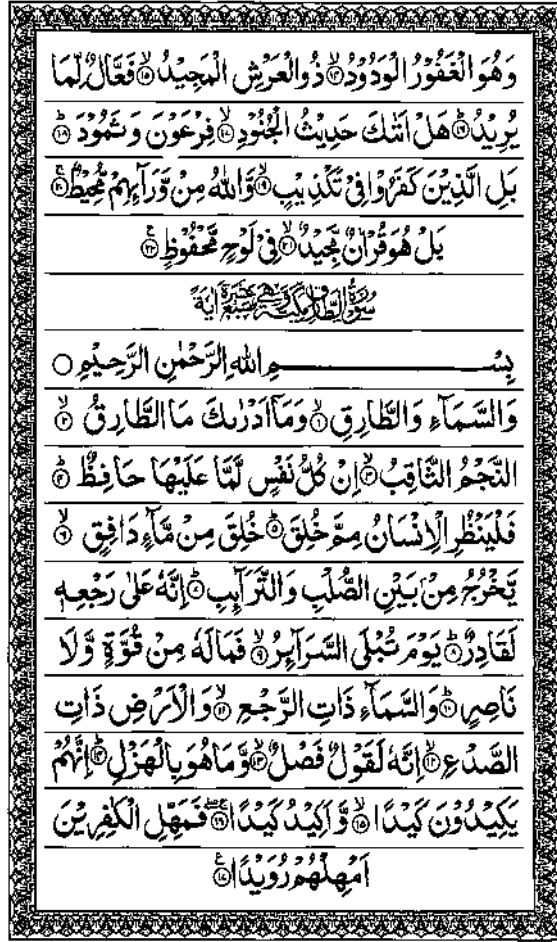 وَهُوَ الْغَفُوْرُ الْوَدُوْدُ ۙ﴿۱۴﴾ ذُو الْعَرْشِ الْمَجِيْدُ ۙ﴿۱۵﴾ فَعَّالٌ لِّمَا
يُرِيْدُ ؕ﴿۱۶﴾ هَلْ اَتٰىكَ حَدِيْثُ الْجُنُوْدِ ۙ﴿۱۷﴾ فِرْعَوْنَ وَثَمُوْدَ ؕ﴿۱۸﴾
بَلِ الَّذِيْنَ كَفَرُوْا فِيْ تَكْذِيْبٍ ۙ﴿۱۹﴾ وَّاللّٰهُ مِنْ وَّرَآئِهِمْ مُّحِيْطٌ ۚ﴿۲۰﴾
بَلْ هُوَ قُرْاٰنٌ مَّجِيْدٌ ۙ﴿۲۱﴾ فِيْ لَوْحٍ مَّحْفُوْظٍ ﴿۲۲﴾
سُوْرَةُ الطَّارِقِ مَكِّيَّةٌ وَّهِيَ سَبْعَ عَشْرَةَ اٰيَةً
بِسْمِ اللّٰهِ الرَّحْمٰنِ الرَّحِيْمِ ○
وَالسَّمَآءِ وَالطَّارِقِ ۙ﴿۱﴾ وَمَآ اَدْرٰىكَ مَا الطَّارِقُ ۙ﴿۲﴾
النَّجْمُ الثَّاقِبُ ۙ﴿۳﴾ اِنْ كُلُّ نَفْسٍ لَّمَّا عَلَيْهَا حَافِظٌ ؕ﴿۴﴾
فَلْيَنْظُرِ الْاِنْسَانُ مِمَّ خُلِقَ ؕ﴿۵﴾ خُلِقَ مِنْ مَّآءٍ دَافِقٍ ۙ﴿۶﴾
يَّخْرُجُ مِنْۢ بَيْنِ الصُّلْبِ وَالتَّرَآئِبِ ؕ﴿۷﴾ اِنَّهٗ عَلٰى رَجْعِهٖ
لَقَادِرٌ ؕ﴿۸﴾ يَوْمَ تُبْلَى السَّرَآئِرُ ۙ﴿۹﴾ فَمَا لَهٗ مِنْ قُوَّةٍ وَّلَا
نَاصِرٍ ؕ﴿۱۰﴾ وَالسَّمَآءِ ذَاتِ الرَّجْعِ ۙ﴿۱۱﴾ وَالْاَرْضِ ذَاتِ
الصَّدْعِ ۙ﴿۱۲﴾ اِنَّهٗ لَقَوْلٌ فَصْلٌ ۙ﴿۱۳﴾ وَّمَا هُوَ بِالْهَزْلِ ؕ﴿۱۴﴾ اِنَّهُمْ
يَكِيْدُوْنَ كَيْدًا ۙ﴿۱۵﴾ وَّاَكِيْدُ كَيْدًا ۚ﴿۱۶﴾ فَمَهِّلِ الْكٰفِرِيْنَ
اَمْهِلْهُمْ رُوَيْدًا ﴿۱۷﴾